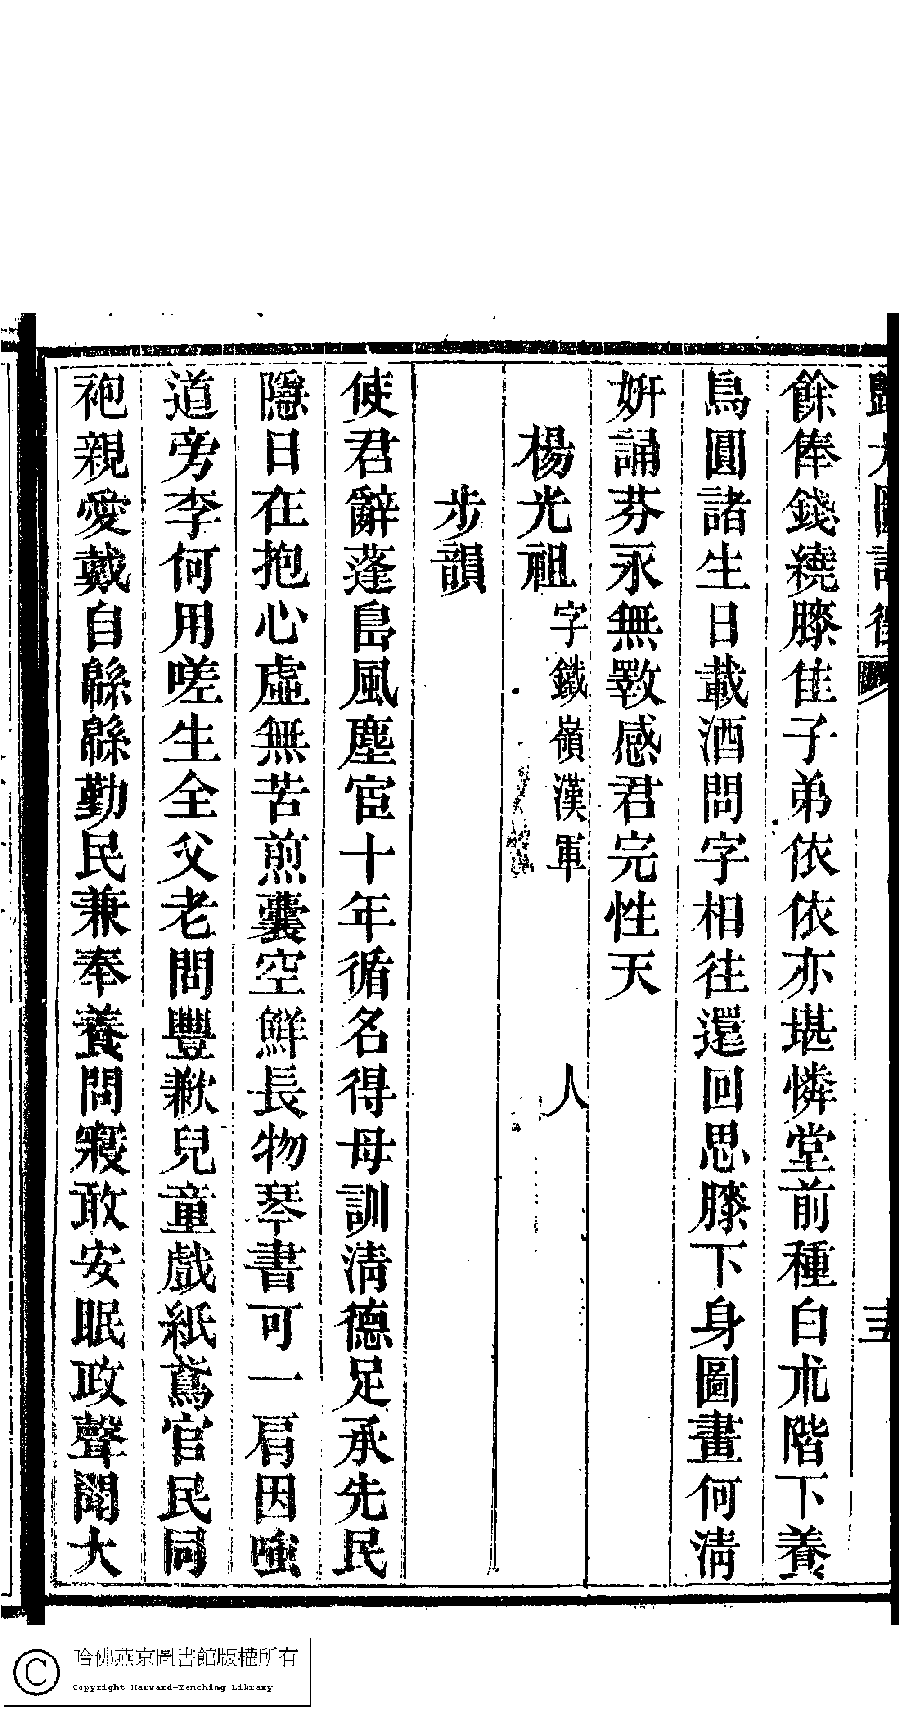 餘俸錢繞膝佳子弟依依亦堪憐堂前種白朮階下養
烏圓諸生日載酒問字相往還回思膝下身圖畫何淸
妍誦芬永無斁感君完性天
楊光祖 字鐵嶺漢軍 人
步韻
使君辭蓬島風塵宦十年循名得母訓淸德足承先民
隱日在抱心虛無苦煎囊空鮮長物琴書可一肩因嗤
道旁李何用嗟生全父老問豐歉兒童戲紙鳶官民同
袍親愛戴自緜緜勤民兼奉養問寢敢安眠政聲聞大
哈佛燕京圖書館版權所有
Copyright Harvard-Yenching Library